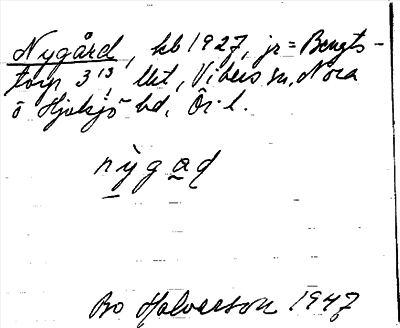 Nygård, kb 1927, jr = Bengts-
torp 3¹³, lht, Vibers sn, Nora
o Hjulsjö bd, Ör. l.
nỳga̲ḍ
Bo Halvarson 1947